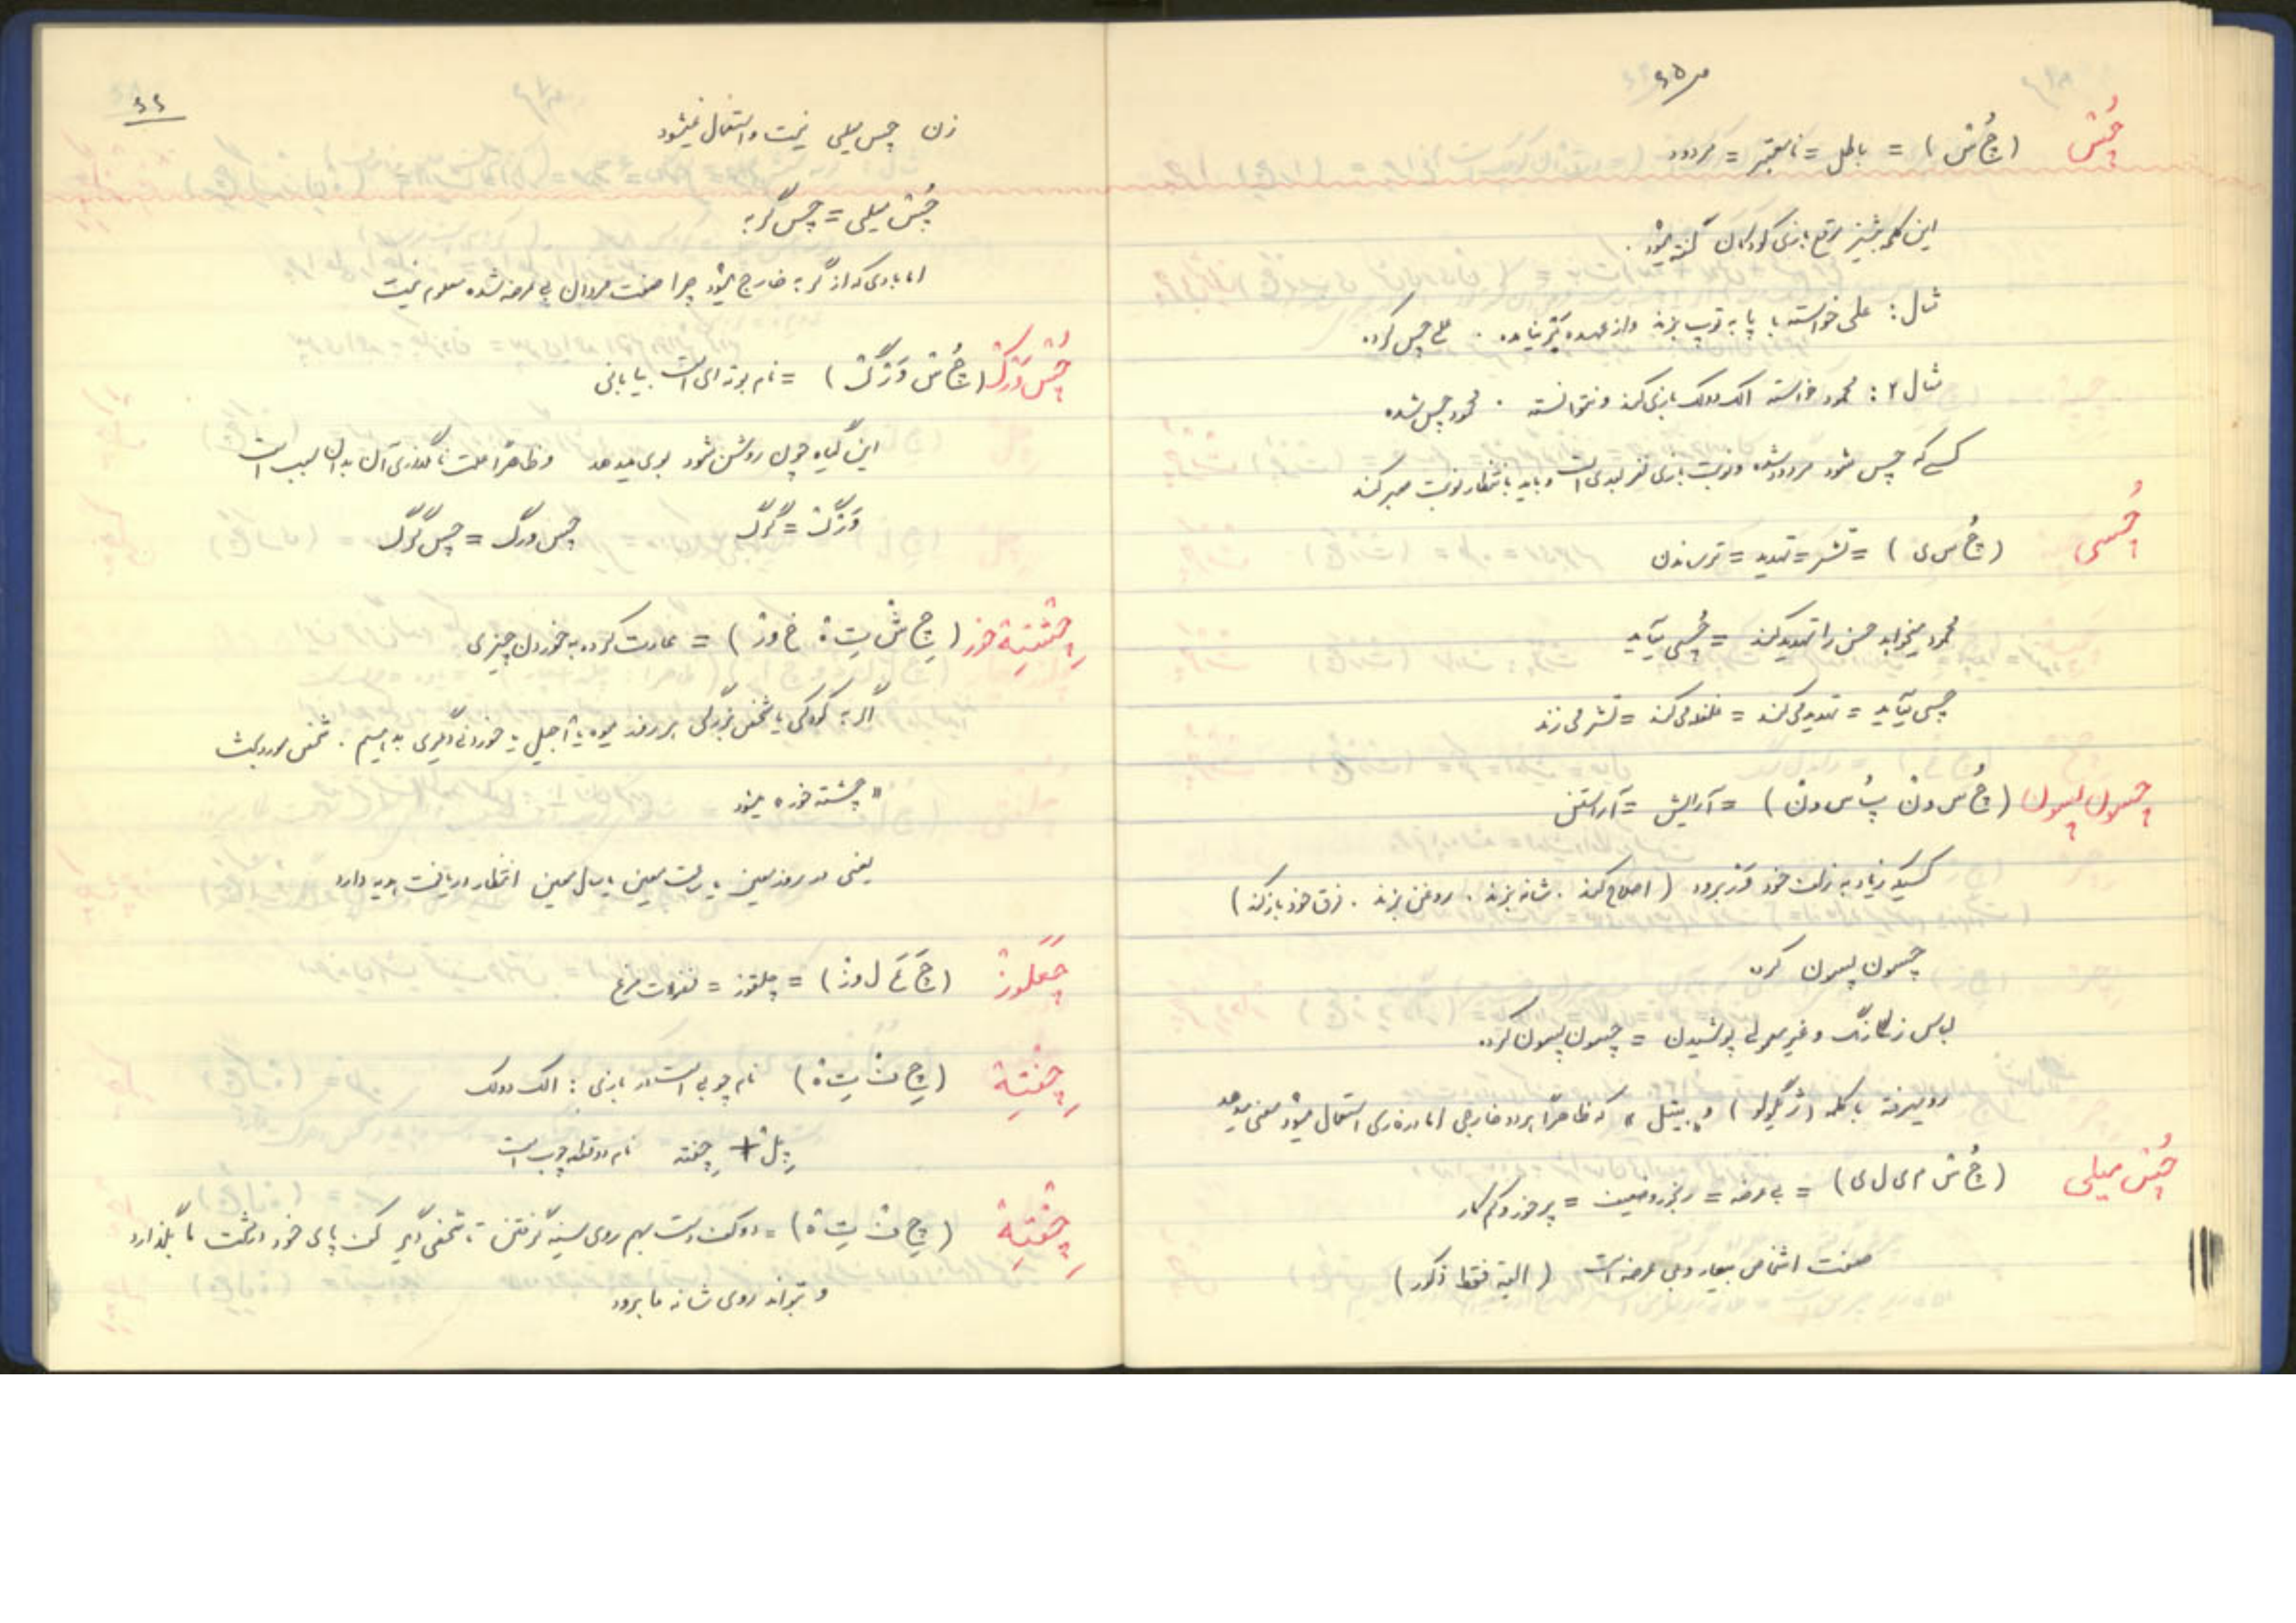 ۶۵
چُسْ (چُ سْ) = باطل = نامعتبر = مردود
این کلمه بیشتر موقع بازی کودکان گفته میشود.
مثال: علی خواسته با پا به توپ بزند و از عهده بر نیامده. علی چس کرده
مثال ۲: محمود خواسته الک دولک بازی کند و نتوانسته. محمود چس شده
کسی که چس شود مردود شده و نوبت بازی نفر بعدی است و باید بانتظار نوبت صبر کند
چُسی (چُ س ی) = تشر = تهدید = ترساندن
محمود میخواهد حسن را تهدید کند = چُسی میآید
چسی میآید = تهدید می‌کند = می‌کند = تشر می‌زند
چسون پسون (چُ س ونْ پُ س ونْ) = آرایش = آراستن
کسیکه زیاد به زلف خود برود (اصلاح کند. شانه بزند. روغن بزند. فرق خود باز کند)
چسون پسون کرده
لباس رنگارنگ و غیر معمولی پوشیدن = چسون پسون کرده
رویهمرفته با کلمه (ژیگولو) و «بیتل» که ظاهراً هر دو خارجی اما در فارسی استعمال میشود معنی میدهد
چُسْ میلی (چُ سْ م ی ل ی) = بی عرضه = رنجور و ضعیف = پرخور و کم کار
صفت اشخاص بیعار و بی عرضه است (البته فقط ذکور)
۶۶
زن چس میلی نیست و استعمال نمیشود
چُسْ میلی = چس گربه
اما بادی که از گربه خارج میشود چرا صفت مردان بی عرضه شده معلوم نیست
چُسْ وَرْگْ (چُ سْ وَ رْ گْ) = نام بوته ای است بیابانی
این گیاه چون روشن شود بوی میدهد و ظاهراً علت نامگذاری آن بدان سبب است
وَرْگْ = گُرگْ چس ورگ = چس گرگ
چِشْتِهْ خور (چِ شْ تِ هْ خ ورْ) = عادت کرده به خوردن چیزی
اگر به کودکی یا شخص بزرگی هر روز میوه یا آجیل یا خوردنی دیگری بدهیم. شخص مورد بحث
«چشته خور» میشود
یعنی در روز معین یا ساعت معین یا سال معین انتظار دریافت هدیه دارد
چَغَلوزْ (چَ غَ ل وزْ) = چلقوز = فضولات مرغ
چِفْتِهْ (چِ فْ تِ هْ) نام چوبی است در بازی: الک دولک
پِلْ + چِفته نام دو قطعه چوب است
چِفْتِهْ (چِ فْ تِ هْ) = دو کف دست بهم روی سینه گرفتن تا شخص دیگر کف پای خود در دست ما بگذارد
و بتواند روی شانه ما برود